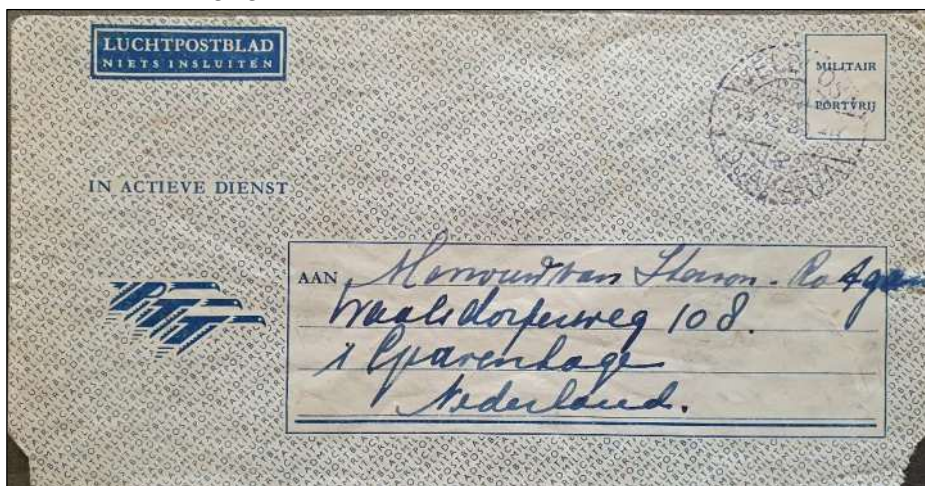 LUCHTPOSTBLAD
NIETS INSLUITEN
MILITAIR
PORTVRIJ
IN ACTIEVE DIENST
AAN Mevrouw van
Waalsdorperweg 108.
s Gravenhage
Nederland.
PTT